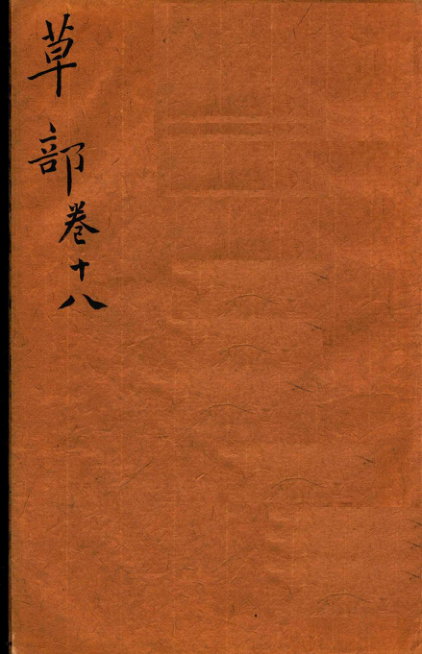 草部卷十八